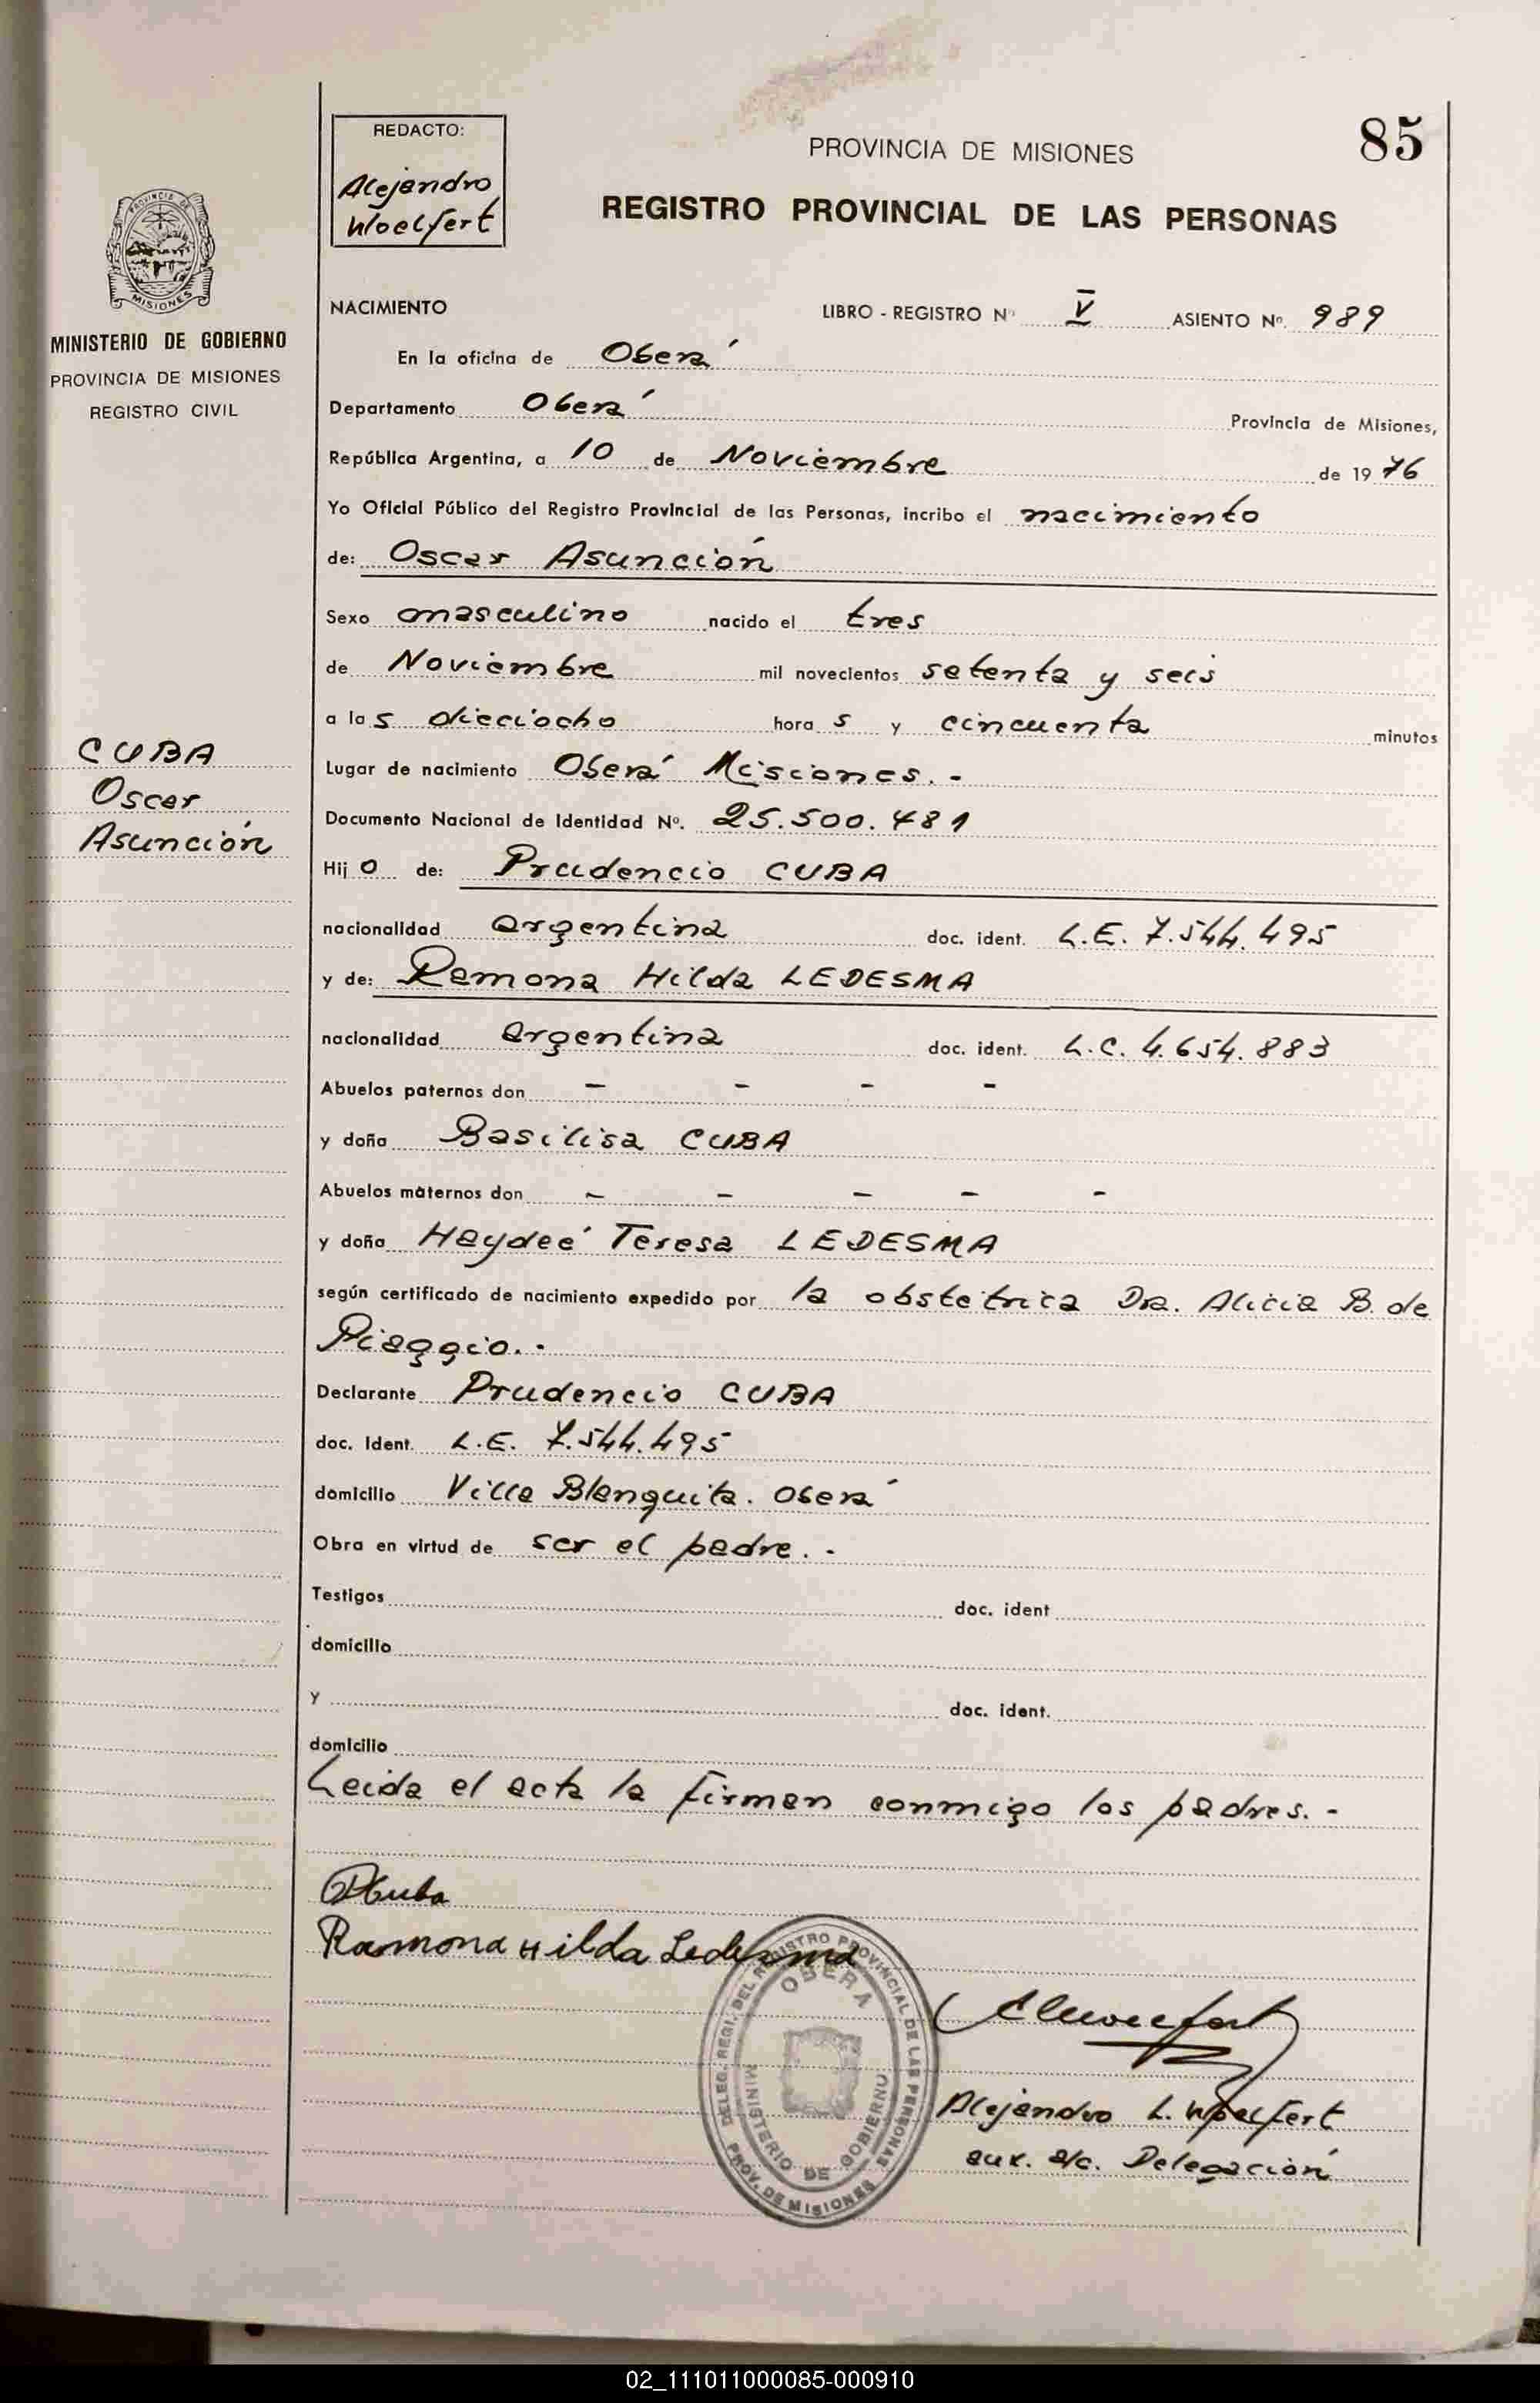 85
REDACTO:
Alejandro
Woelfert
PROVINCIA DE MISIONES
REGISTRO PROVINCIAL DE LAS PERSONAS
PROVINCIA DE
MISIONES
MINISTERIO DE GOBIERNO
PROVINCIA DE MISIONES
REGISTRO CIVIL
NACIMIENTO LIBRO - REGISTRO Nº V ASIENTO Nº 989
En la oficina de Oberá
Departamento Oberá Provincia de Misiones,
República Argentina, a 10 de Noviembre de 1976
Yo Oficial Público del Registro Provincial de las Personas, incribo el nacimiento
de: Oscar Asunción
Sexo masculino nacido el tres
de Noviembre mil novecientos setenta y seis
a las dieciocho horas y cincuenta minutos
CUBA
Oscar
Asunción
Lugar de nacimiento Oberá Misiones. -
Documento Nacional de Identidad Nº. 25.500.481
Hijo de: Prudencio CUBA
nacionalidad argentina doc. ident. L.E. 7.544.495
y de: Ramona Hilda LEDESMA
nacionalidad argentina doc. ident. L.C. 4.654.883
Abuelos paternos don - - - -
y doña Basilisa CUBA
Abuelos maternos don - - - - -
y doña Haydeé Teresa LEDESMA
según certificado de nacimiento expedido por la obstetrica Dra. Alicia B. de
Piaggio. -
Declarante Prudencio CUBA
doc. Ident. L.E. 7.544.495
domicilio Villa Blanquita. Oberá
Obra en virtud de ser el padre. -
Testigos doc. ident
domicilio
y doc. ident.
domicilio
Leida el acta la firman conmigo los padres. -
PCuba
Ramona Hilda Ledesma
DELEG. REGI. DEL REGISTRO PROVINCIAL DE LAS PERSONAS
OBERA
MINISTERIO DE GOBIERNO
PROV. DE MISIONES
Alejandro L. Woelfert
aux. a/c. Delegación
02_111011000085-000910